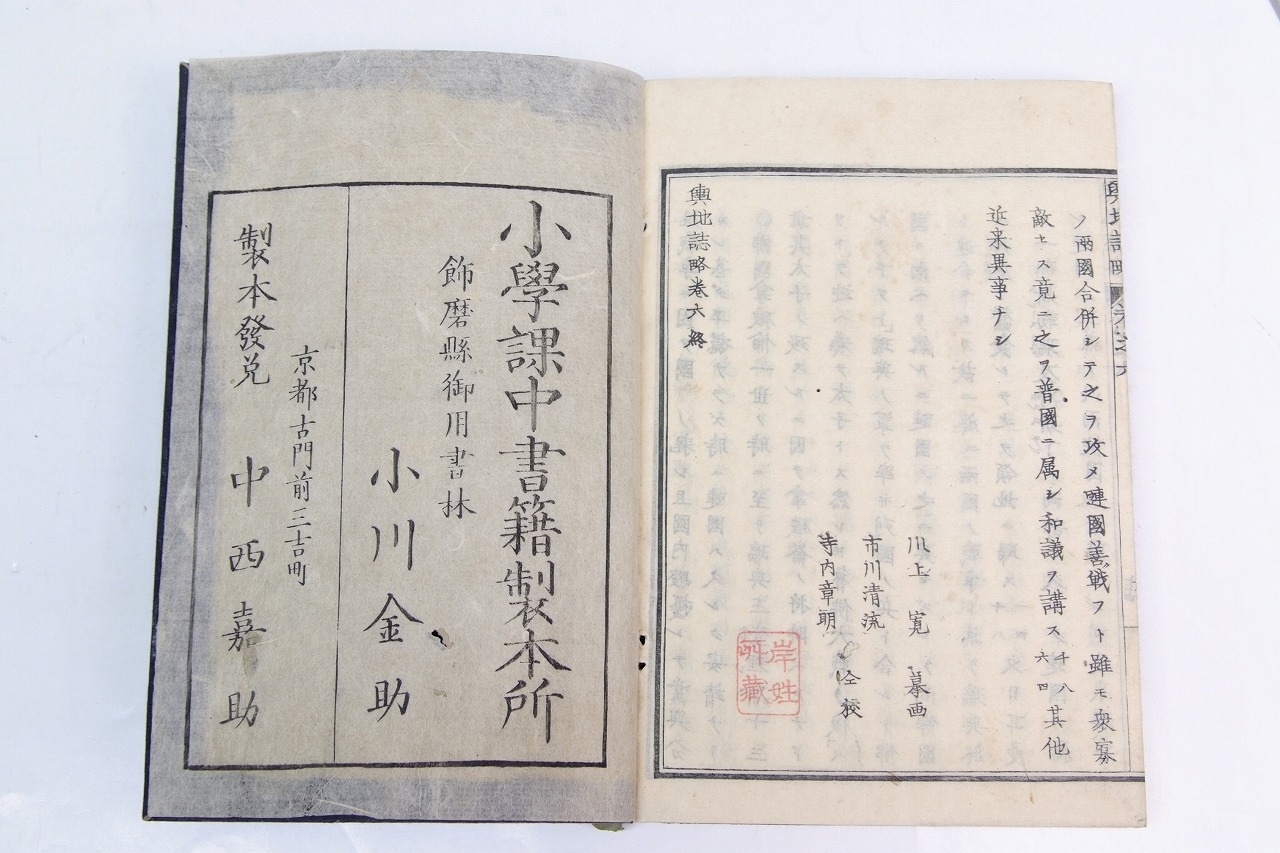 輿地誌略
卷之六
ノ兩國合併シテ之ヲ攻メ嗹國善戰フト雖モ衆寡
敵セス竟ニ之ヲ普國ニ属シ和議ヲ講ス千八六四其他
近来異事ナシ
川上 寛 摹画
市川清流
寺内章明 仝校
岸姓所藏
輿地誌略卷六終
小學課中書籍製本所
飾磨縣御用書林
小川金助
京都古門前三吉町
製本發兌 中西嘉助